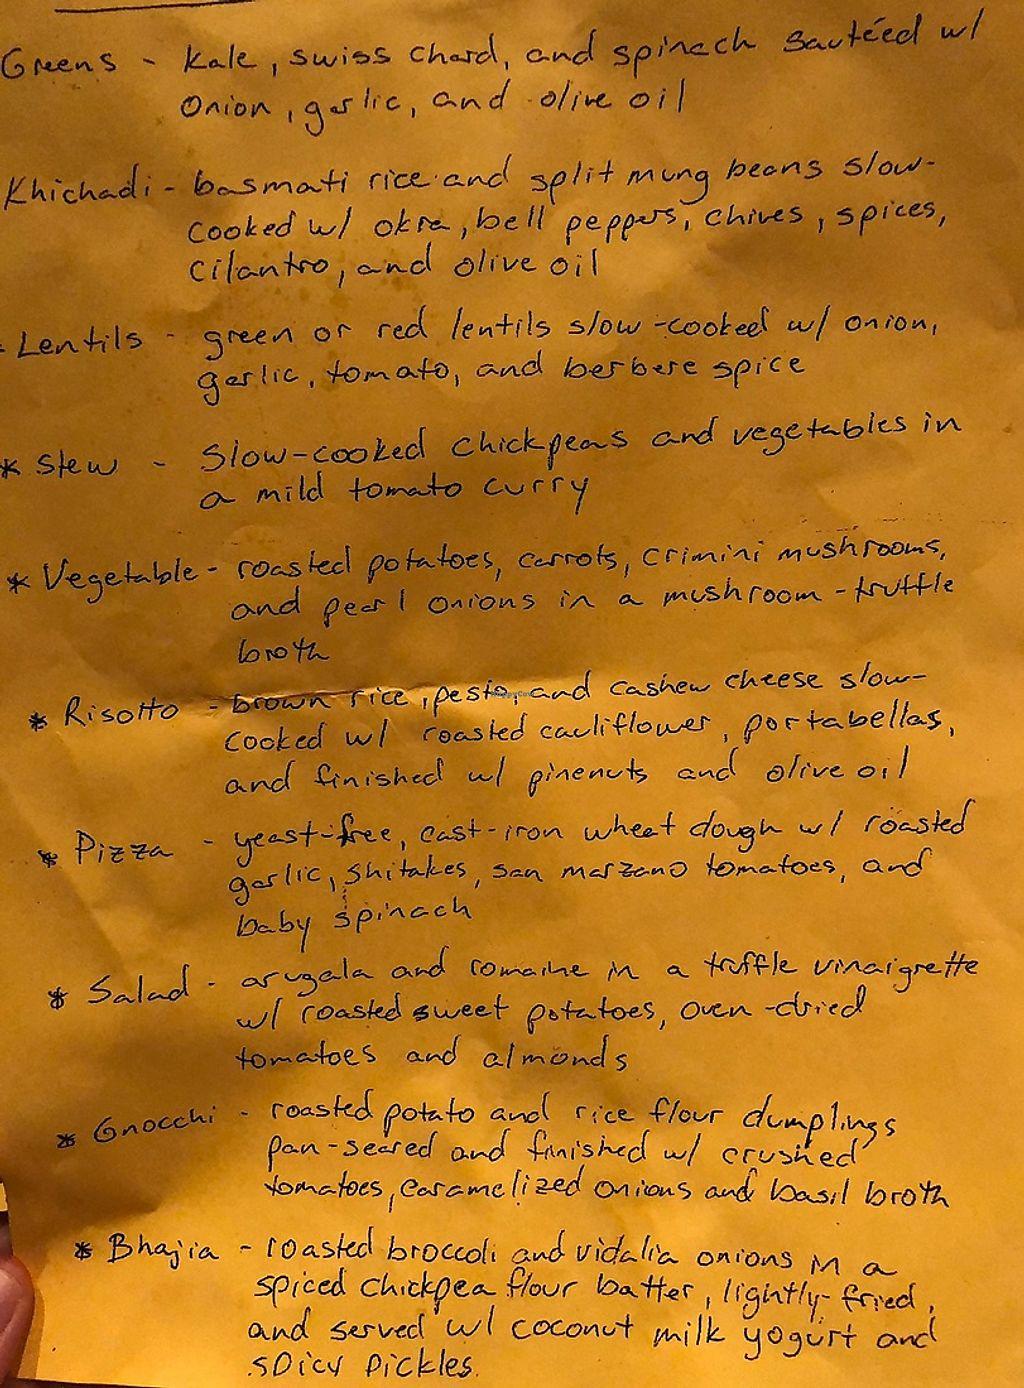 Greens - kale, swiss chard, and spinach sautéed w/
onion, garlic, and olive oil
Khichadi - basmati rice and split mung beans slow-
cooked w/ okra, bell peppers, chives, spices,
cilantro, and olive oil
- Lentils - green or red lentils slow-cooked w/ onion,
garlic, tomato, and berbere spice
* Stew - Slow-cooked chickpeas and vegetables in
a mild tomato curry
* Vegetable - roasted potatoes, carrots, crimini mushrooms,
and pearl onions in a mushroom-truffle
broth
* Risotto - brown rice, pesto, and cashew cheese slow-
cooked w/ roasted cauliflower, portabellas,
and finished w/ pinenuts and olive oil
* Pizza - yeast-free, cast-iron wheat dough w/ roasted
garlic, shitakes, san marzano tomatoes, and
baby spinach
* Salad - arugala and romaine in a truffle vinaigrette
w/ roasted sweet potatoes, oven-dried
tomatoes and almonds
* Gnocchi - roasted potato and rice flour dumplings
pan-seared and finished w/ crushed
tomatoes, caramelized onions and basil broth
* Bhajia - roasted broccoli and vidalia onions in a
spiced chickpea flour batter, lightly-fried,
and served w/ coconut milk yogurt and
spicy pickles.